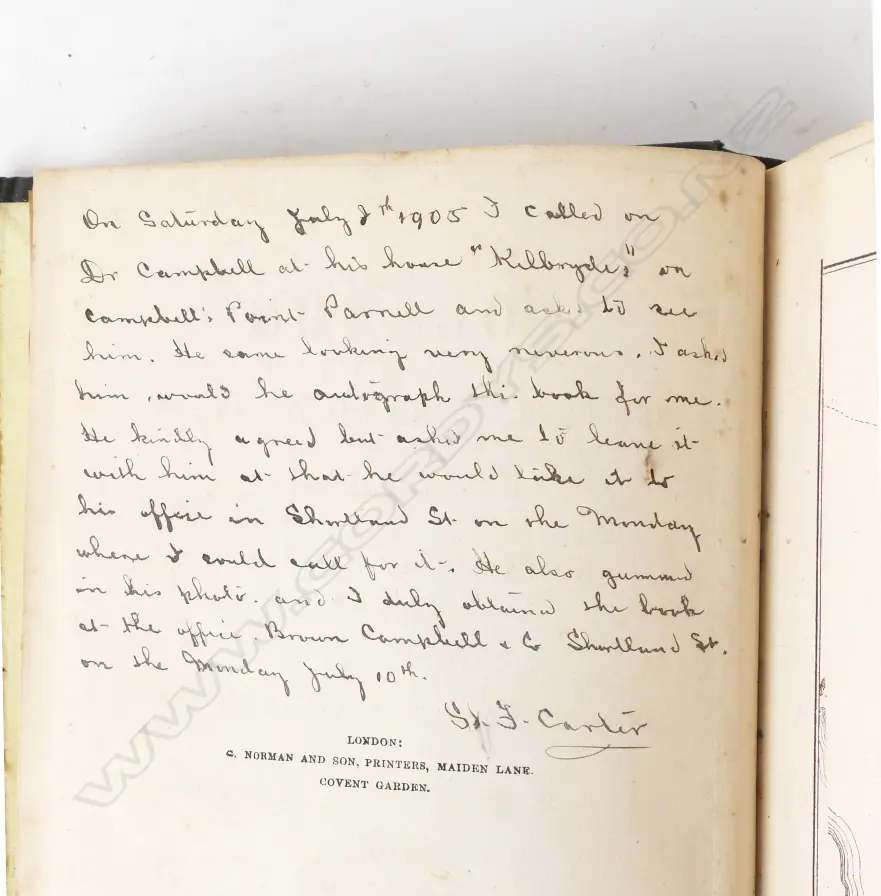 On Saturday July 8th 1905 I called on
Dr Campbell at his house "Kilbryde," on
Campbell's Point Parnell and asked to see
him. He came looking very nervous. I asked
him, would he autograph this book for me.
He kindly agreed but asked me to leave it
with him at that he would take it to
his office in Shortland St. on the Monday
where I could call for it. He also gummed
in his photo. and I duly obtained the book
at the office. Brown Campbell & Co Shortland St.
on the Monday July 10th.
F. Carter
LONDON:
C. NORMAN AND SON, PRINTERS, MAIDEN LANE.
COVENT GARDEN.
WWW.CORDYS.CO.NZ